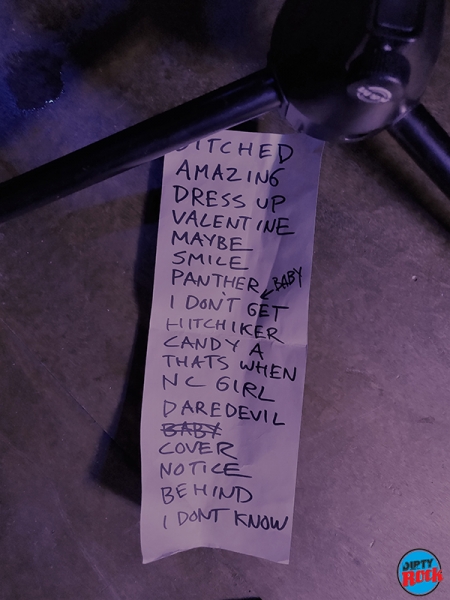 DITCHED
AMAZING
DRESS UP
VALENTINE
MAYBE
SMILE
PANTHER BABY
I DON'T GET
HITCHIKER
CANDY A
THATS WHEN
NC GIRL
DAREDEVIL
BABY
COVER
NOTICE
BEHIND
I DONT KNOW
DIRTY
ROCK